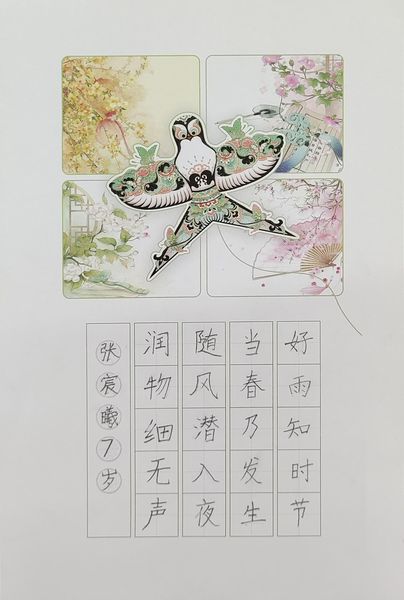 好雨知时节
当春乃发生
随风潜入夜
润物细无声
张宸曦7岁